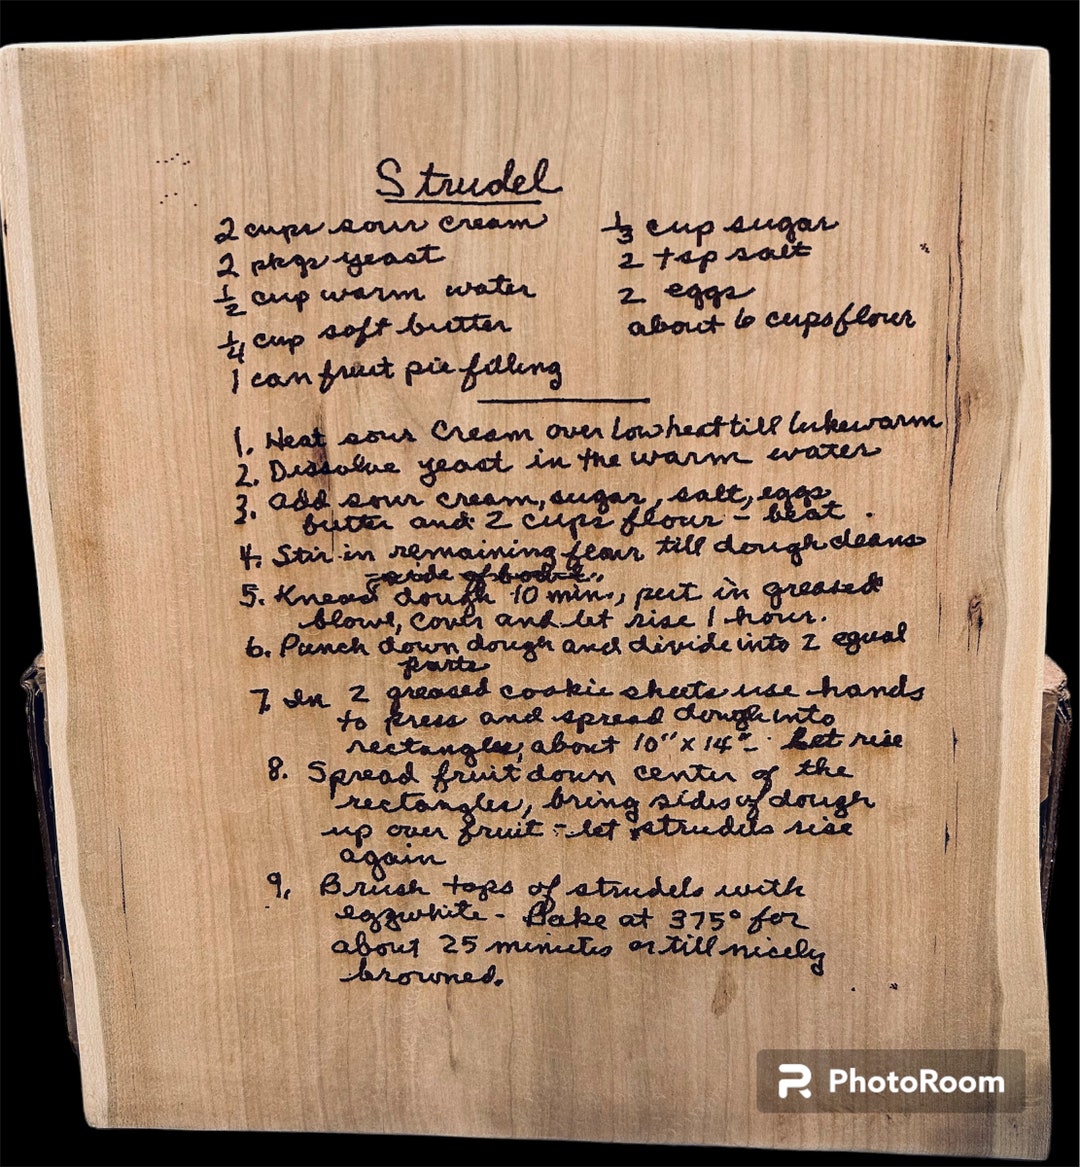 Strudel
2 cups sour cream
2 pkgs yeast
1/2 cup warm water
1/4 cup soft butter
1 can fruit pie filling
1/3 cup sugar
2 tsp salt
2 eggs
about 6 cups flour
1. Heat sour cream over low heat till lukewarm
2. Dissolve yeast in the warm water
3. Add sour cream, sugar, salt, eggs
butter and 2 cups flour - beat.
4. Stir in remaining flour till dough cleans
side of bowl.
5. Knead dough 10 min., put in greased
blowl, cover and let rise 1 hour.
6. Punch down dough and divide into 2 equal
parts
7. In 2 greased cookie sheets use hands
to press and spread dough into
rectangles, about 10" x 14" - Let rise
8. Spread fruit down center of the
rectangles, bring sides of dough
up over fruit - let strudels rise
again
9. Brush tops of strudels with
eggwhite - Bake at 375° for
about 25 minutes or till nicely
browned.
PhotoRoom